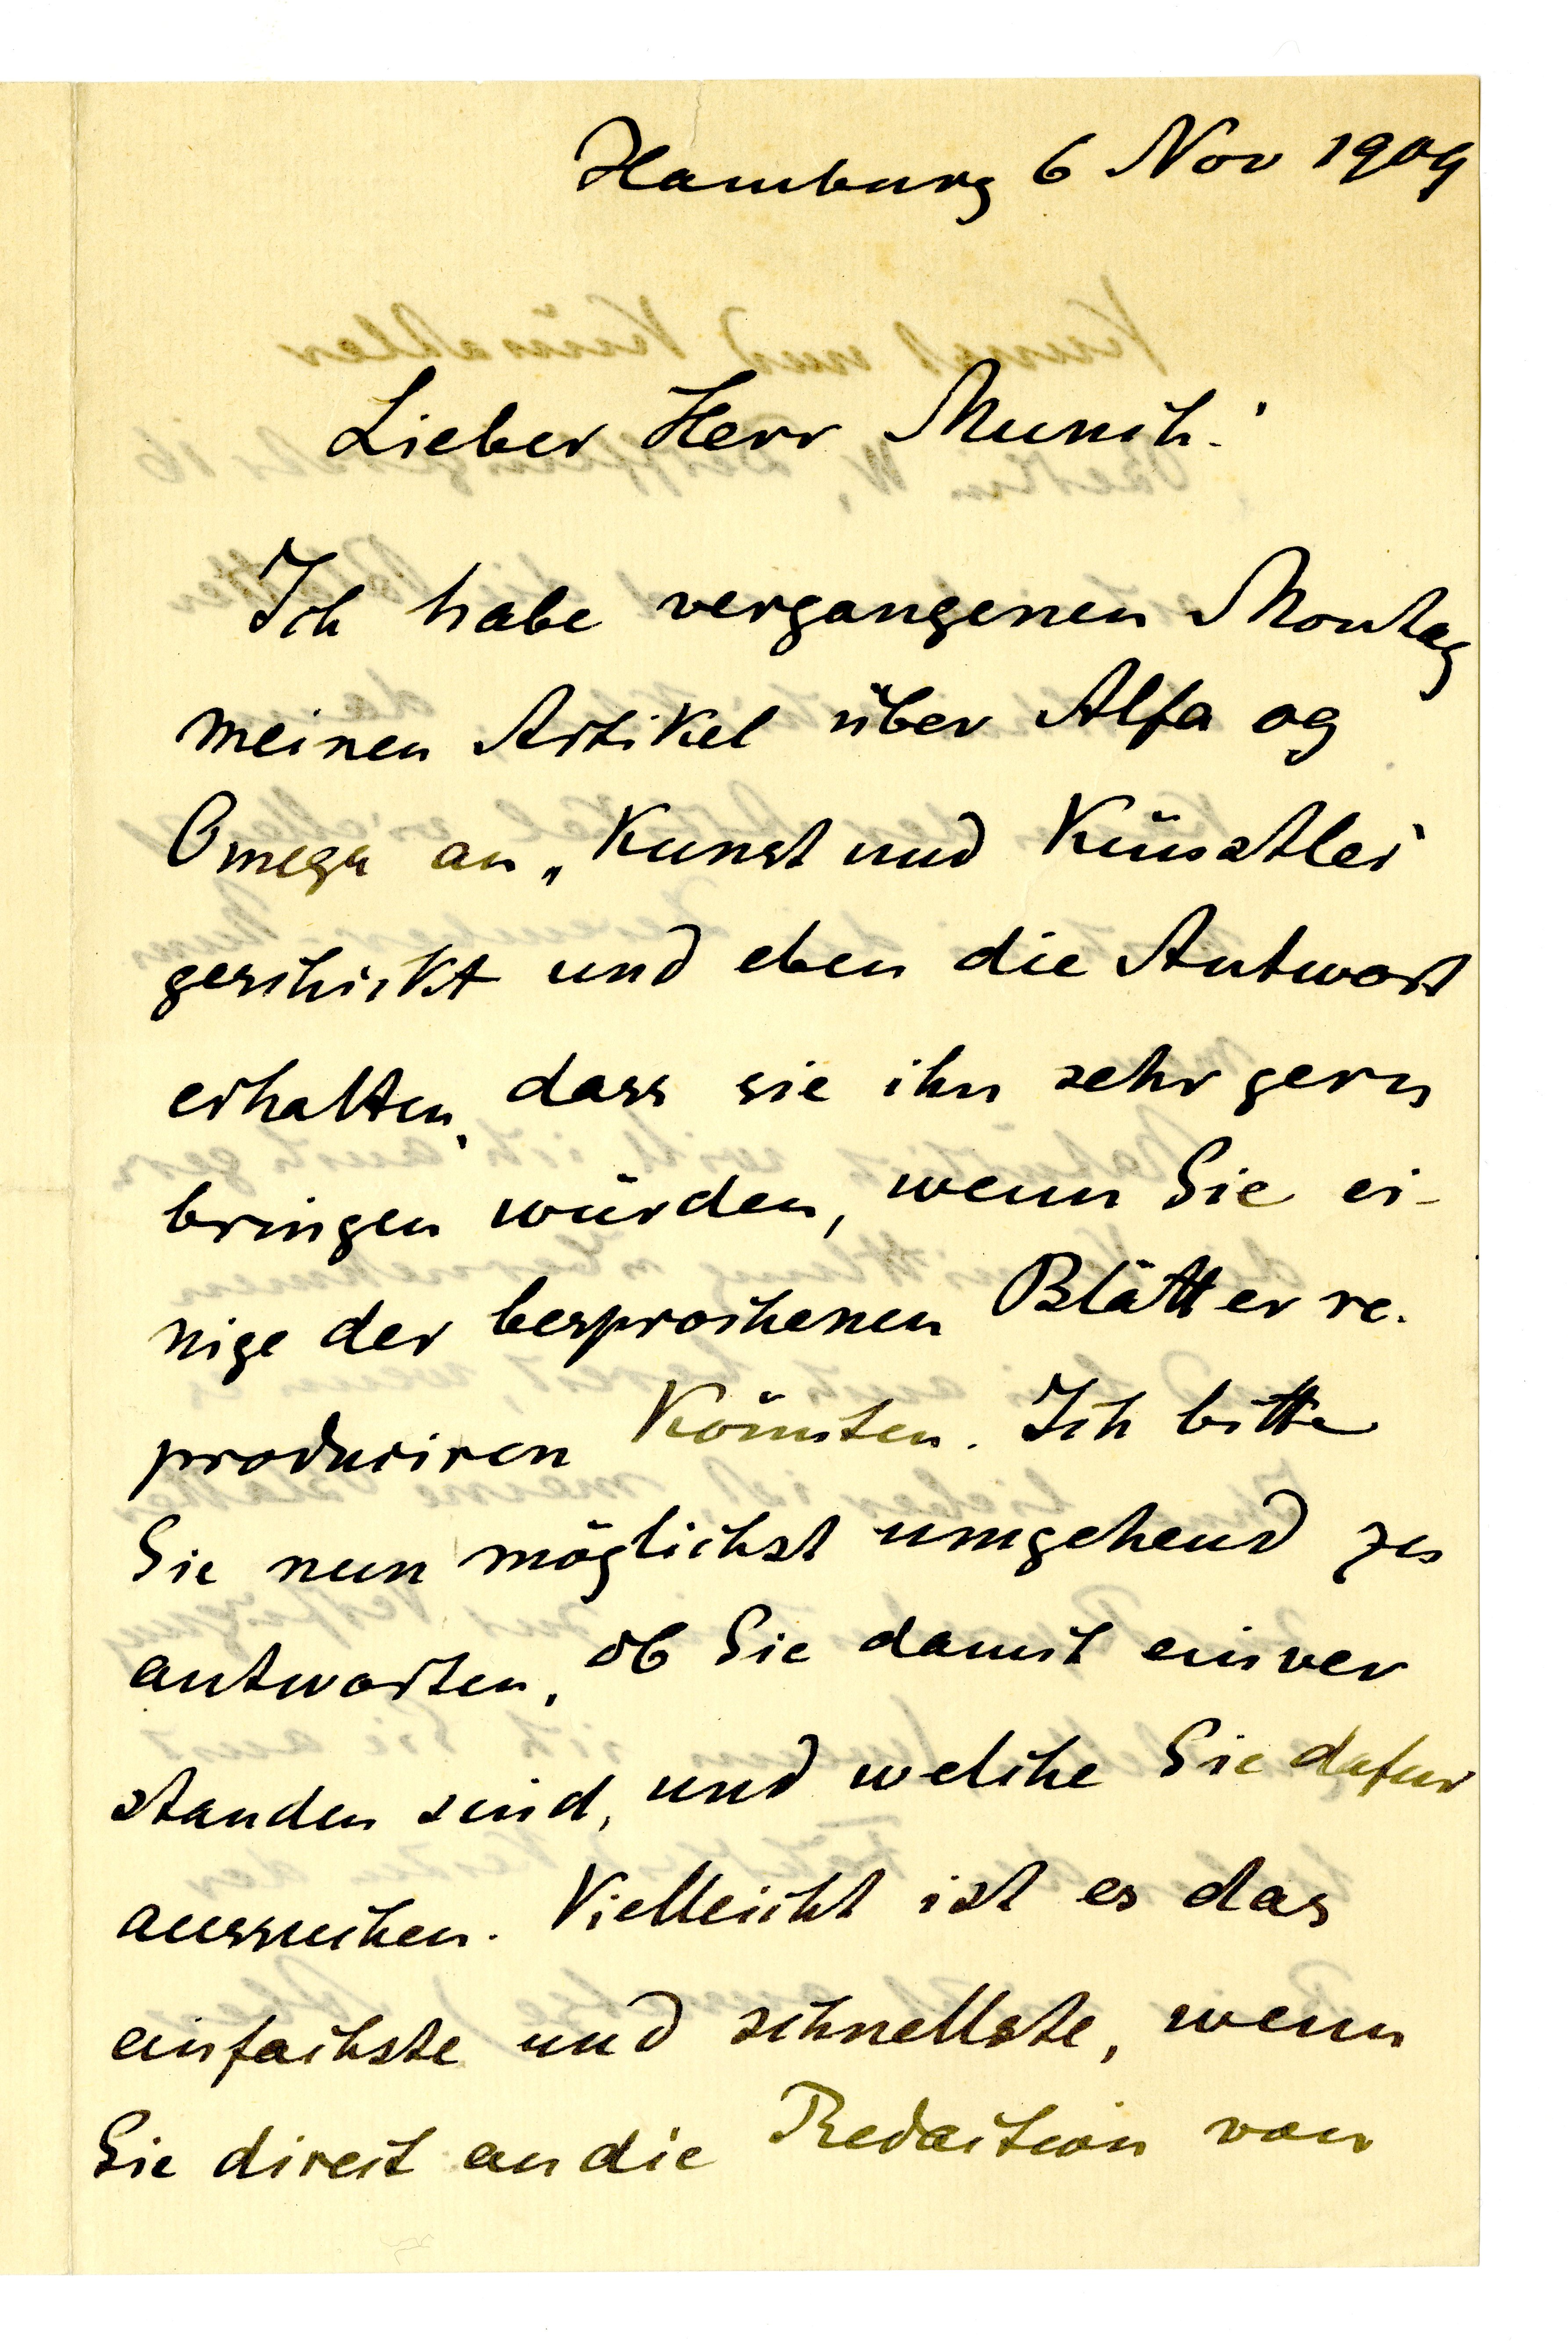 Hamburg 6 Nov 1909
Lieber Herr Munch!
Ich habe vergangenen Montag
meinen Artikel über Alfa og
Omega an „Kunst und Künstler"
geschickt und eben die Antwort
erhalten, dass sie ihn sehr gern
bringen würden, wenn Sie ei-
nige der besprochenen Blätter re-
produciren könnten. Ich bitte
Sie nun möglichst umgehend zu
antworten, ob Sie damit einver
standen sind, und welche Sie dafur
aussuchen. Vielleicht ist es das
einfachste und schnellste, wenn
Sie direct an die Redaction von